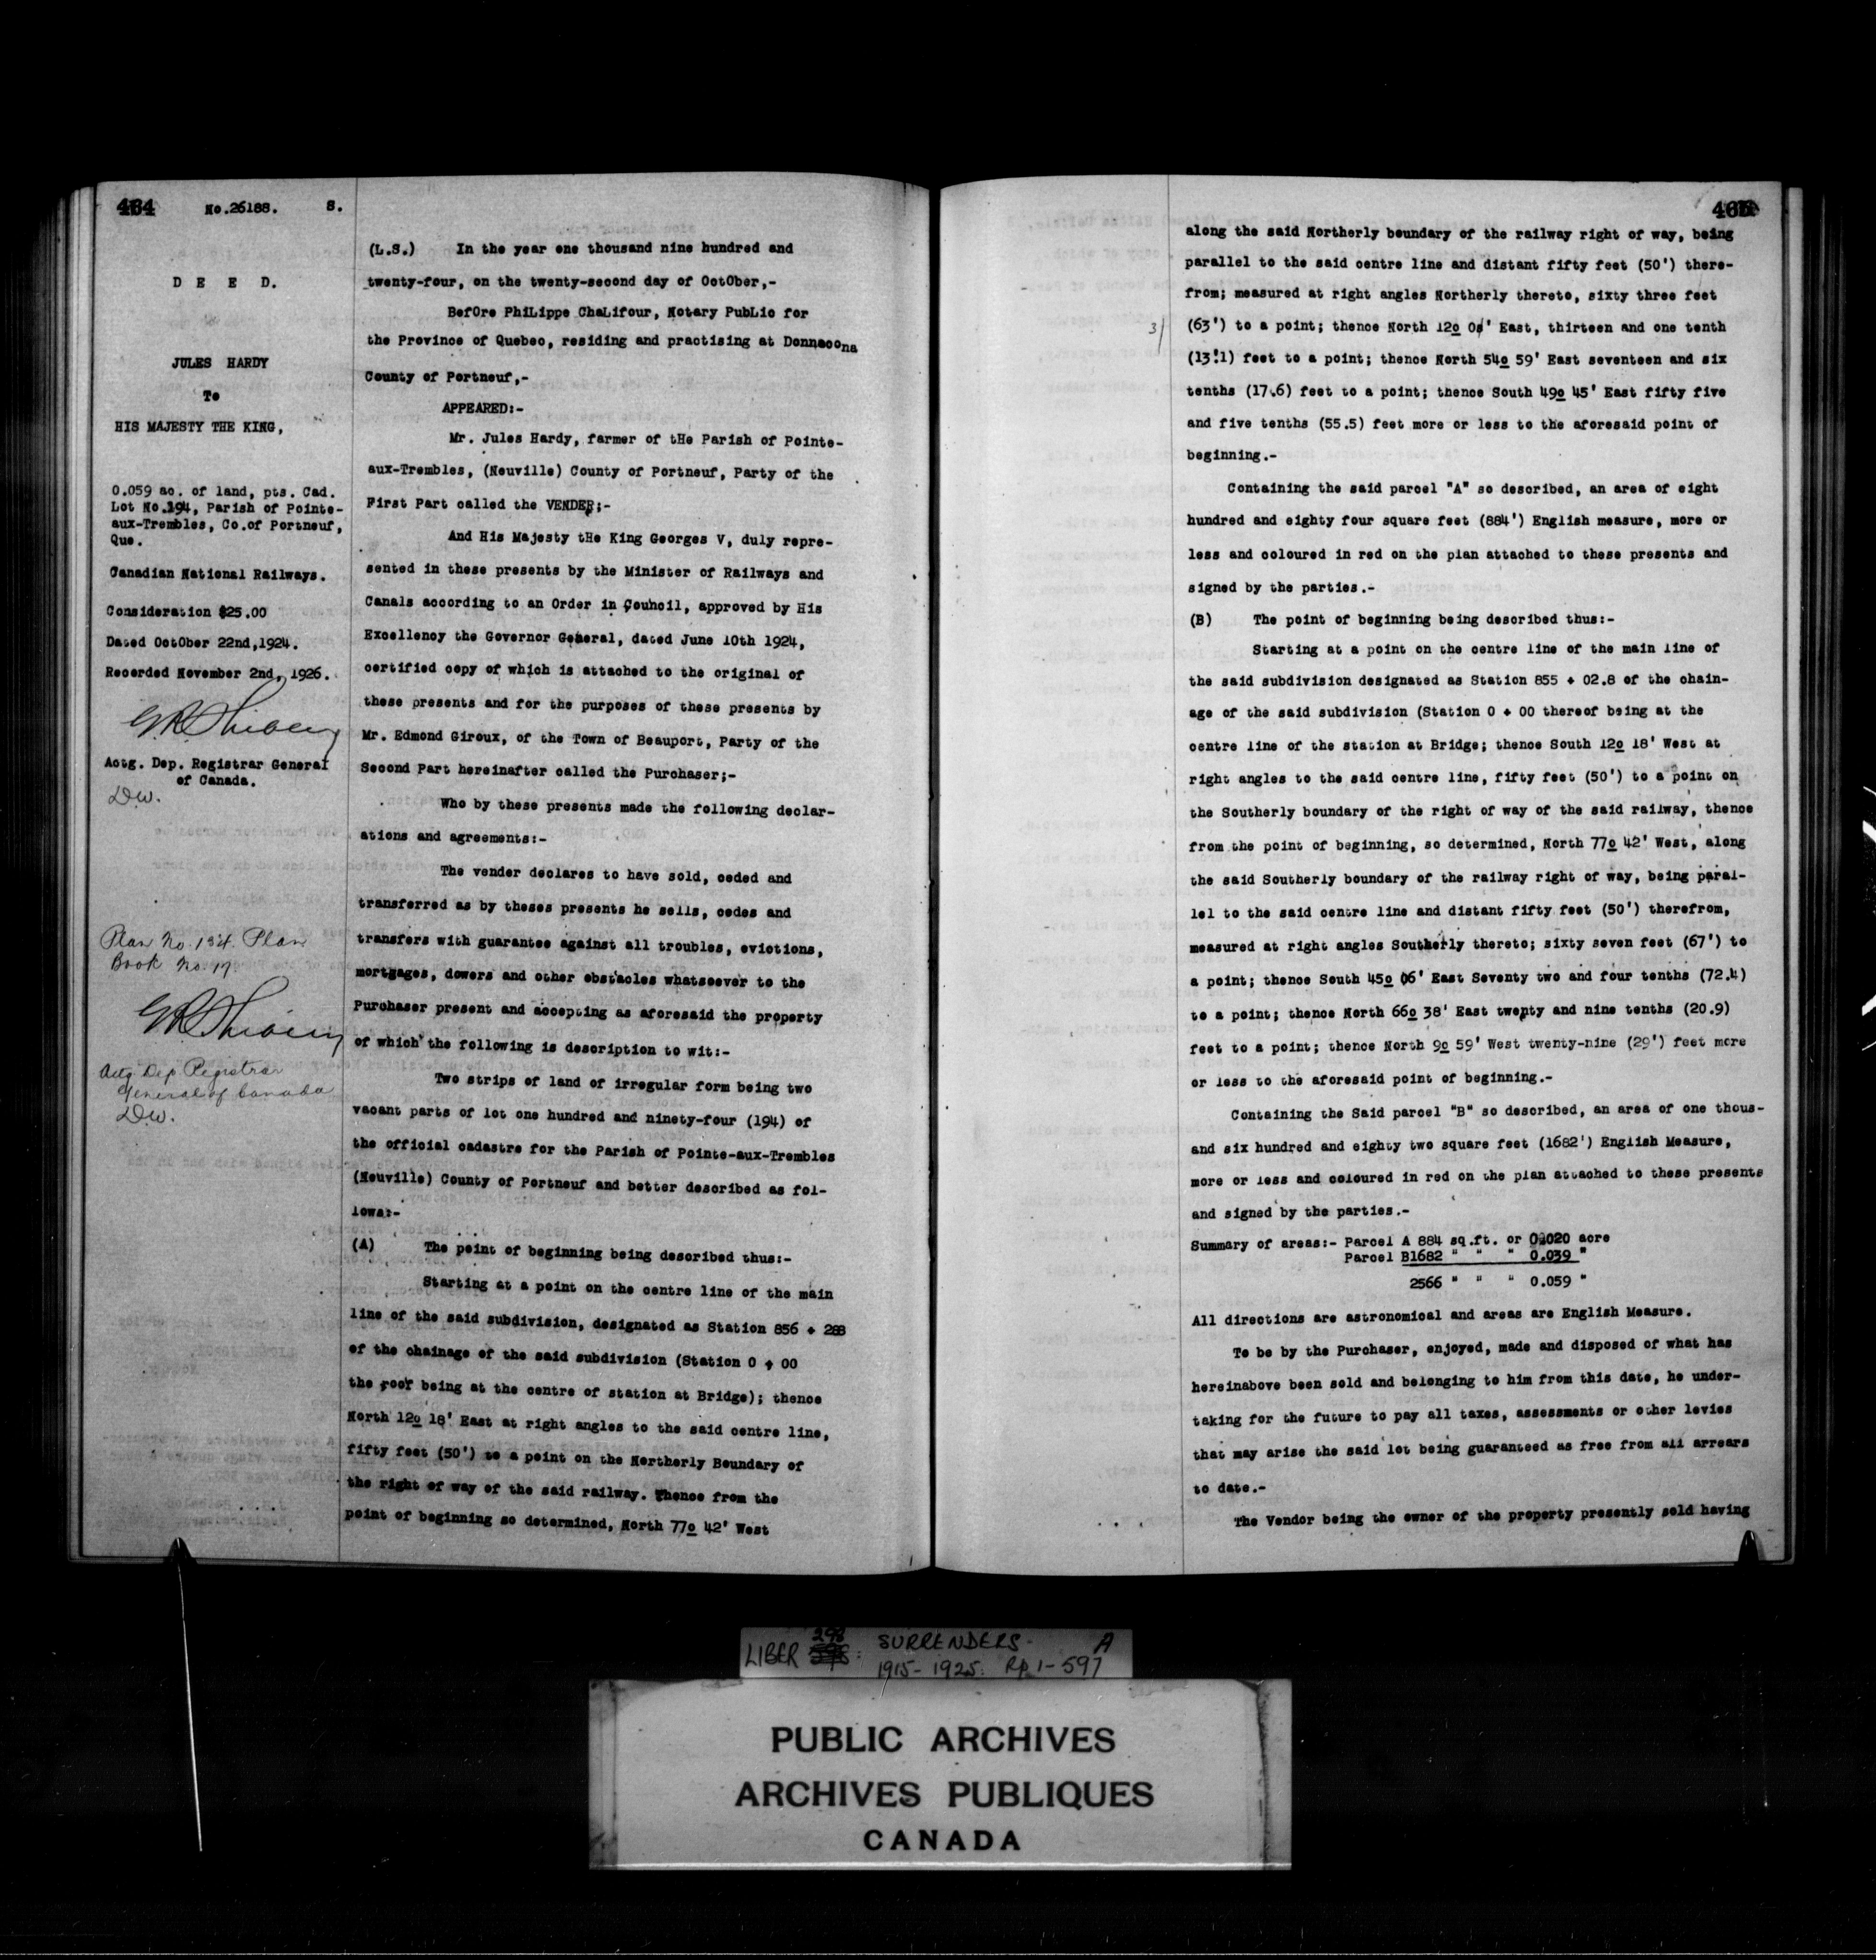 464 No.26188. S.
D E E D.
JULES HARDY
To
HIS MAJESTY THE KING,
0.059 ac. of land, pts. Cad.
Lot No.194, Parish of Pointe-
aux-Trembles, Co.of Portneuf,
Que.
Canadian National Railways.
Consideration $25.00
Dated OctOber 22nd,1924.
Recorded November 2nd, 1926.
Actg. Dep. Registrar General
of Canada.
D.W.
Plan No. 134. Plan
Book No. 17
Actg Dep Registrar
General of Canada
D.W.
(L.S.) In the year one thousand nine hundred and
twenty-four, on the twenty-second day of OctOber,-
BefOre PhiLippe ChaLifour, Notary PubLic for
the Province of Quebec, residing and practising at Donnacona
County of Portneuf,-
APPEARED:-
Mr. Jules Hardy, farmer of tHe Parish of Pointe-
aux-Trembles, (Neuville) County of Portneuf, Party of the
First Part called the VENDER;-
And His Majesty tHe King Georges V, duly repre-
sented in these presents by the Minister of Railways and
Canals according to an Order in Council, approved by His
Excellency the Governor General, dated June 10th 1924,
certified copy of which is attached to the original of
these presents and for the purposes of these presents by
Mr. Edmond Giroux, of the Town of Beauport, Party of the
Second Part hereinafter called the Purchaser;-
Who by these presents made the following declar-
ations and agreements:-
The vender declares to have sold, ceded and
transferred as by theses presents he sells, cedes and
transfers with guarantee against all troubles, evictions,
mortgages, dowers and other obstacles whatsoever to the
Purchaser present and accepting as aforesaid the property
of which the following is description to wit:-
Two strips of land of irregular form being two
vacant parts of lot one hundred and ninety-four (194) of
the official cadastre for the Parish of Pointe-aux-Trembles
(Neuville) County of Portneuf and better described as fol-
lows:-
(A) The point of beginning being described thus:-
Starting at a point on the centre line of the main
line of the said subdivision, designated as Station 856 +
of the chainage of the said subdivision (Station 0 + 00
the roof being at the centre of station at Bridge); thence
North 12o 18' East at right angles to the said centre line,
fifty feet (50') to a point on the Northerly Boundary of
the right of way of the said railway. Thence from the
point of beginning so determined, North 77o 42' West
465
along the said Northerly boundary of the railway right of way, being
parallel to the said centre line and distant fifty feet (50') there-
from; measured at right angles Northerly thereto, sixty three feet
3/ (63') to a point; thence North 12o 0' East, thirteen and one tenth
(13.1) feet to a point; thence North 54o 59' East seventeen and six
tenths (17.6) feet to a point; thence South 49o 45' East fifty five
and five tenths (55.5) feet more or less to the aforesaid point of
beginning.-
Containing the said parcel "A" so described, an area of eight
hundred and eighty four square feet (884') English measure, more or
less and coloured in red on the plan attached to these presents and
signed by the parties.-
(B) The point of beginning being described thus:-
Starting at a point on the centre line of the main line of
the said subdivision designated as Station 855 + 02.8 of the chain-
age of the said subdivision (Station 0 + 00 thereof being at the
centre line of the station at Bridge; thence South 12o 18' West at
right angles to the said centre line, fifty feet (50') to a point on
the Southerly boundary of the right of way of the said railway, thence
from the point of beginning, so determined, North 77o 42' West, along
the said Southerly boundary of the railway right of way, being paral-
lel to the said centre line and distant fifty feet (50') therefrom,
measured at right angles Southerly thereto; sixty seven feet (67') to
a point; thence South 45o 06' East Seventy two and four tenths (72.4)
to a point; thence North 66o 38' East twenty and nine tenths (20.9)
feet to a point; thence North 9o 59' West twenty-nine (29') feet more
or less to the aforesaid point of beginning.-
Containing the Said parcel "B" so described, an area of one thous-
and six hundred and eighty two square feet (1682') English Measure,
more or less and coloured in red on the plan attached to these presents
and signed by the parties.-
Summary of areas:- Parcel A 884 sq.ft. or 0.020 acre
Parcel B1682 " " " 0.039 "
2566 " " " 0.059 "
All directions are astronomical and areas are English Measure.
To be by the Purchaser, enjoyed, made and disposed of what has
hereinabove been sold and belonging to him from this date, he under-
taking for the future to pay all taxes, assessments or other levies
that may arise the said lot being guaranteed as free from all arrears
to date.-
The Vendor being the owner of the property presently sold having
LIBER 293: SURRENDERS A
1915-1925. Pp. 1-597
PUBLIC ARCHIVES
ARCHIVES PUBLIQUES
CANADA